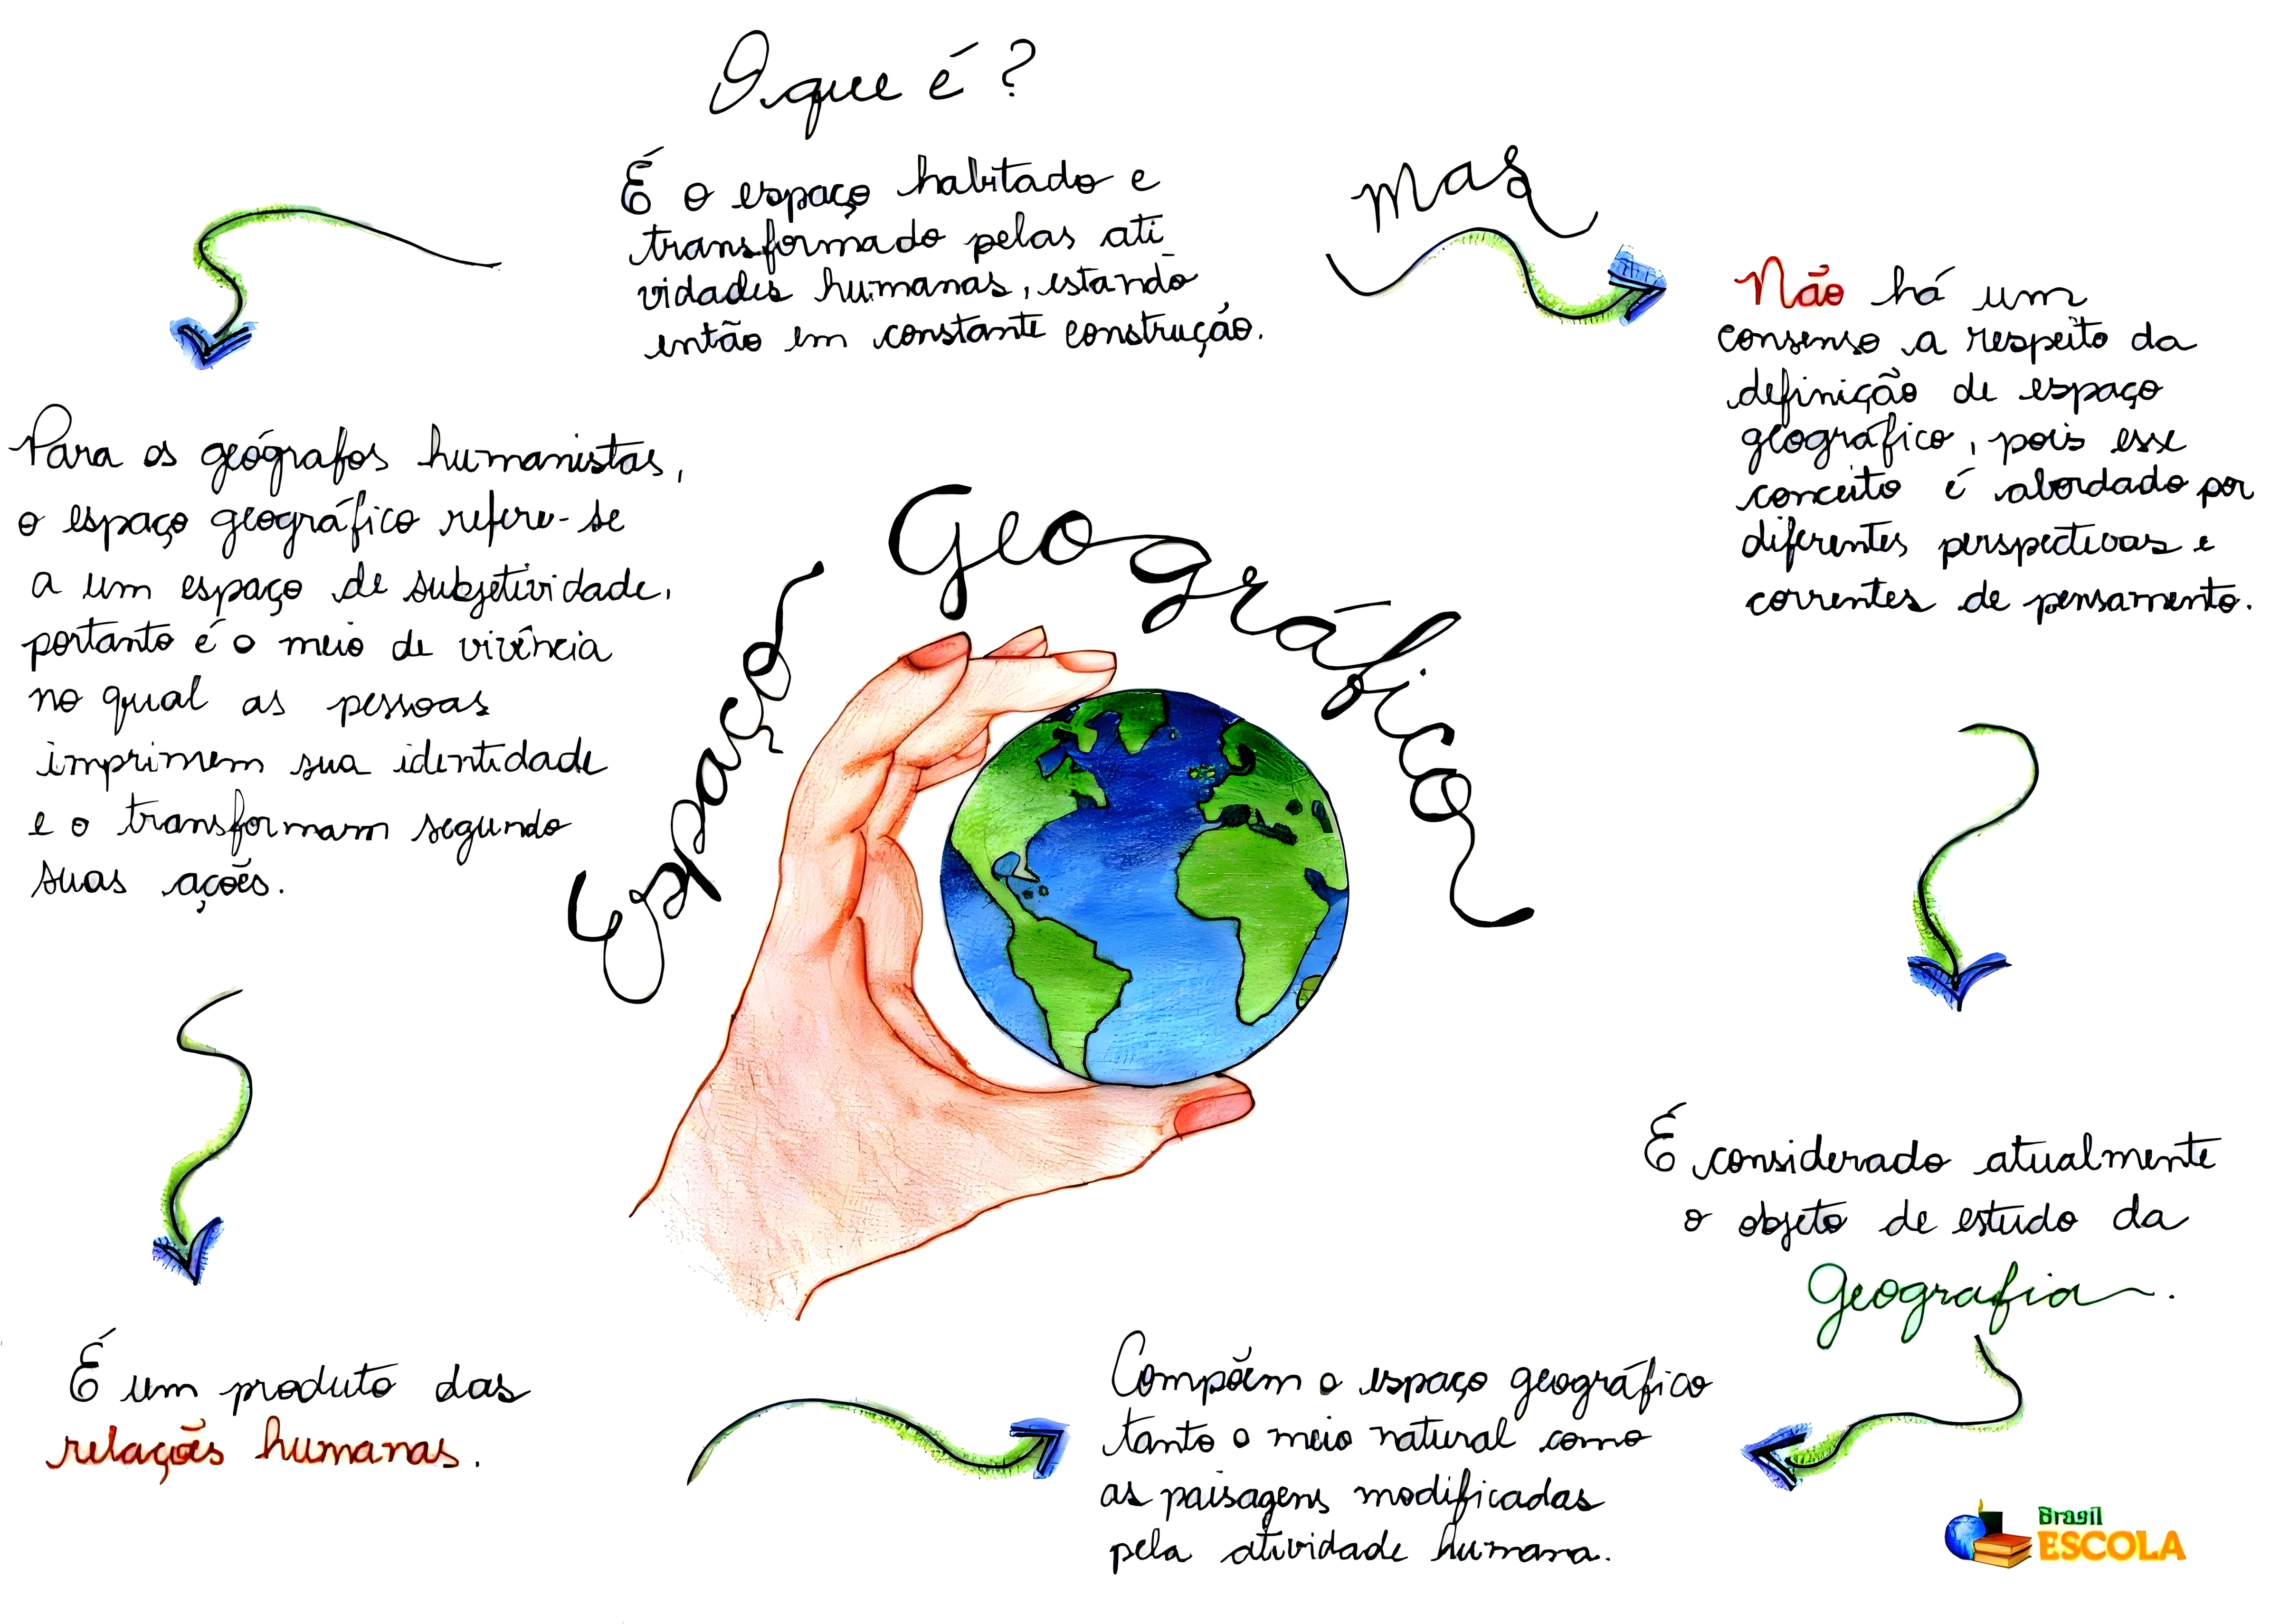 O que é?
É o espaço habitado e
transformado pelas ati_
vidades humanas, estando
então em constante construção.
mas
Não há um
consenso a respeito da
definição de espaço
geográfico, pois esse
conceito é abordado por
diferentes perspectivas e
correntes de pensamento.
Para os geógrafos humanistas,
o espaço geográfico refere-se
a um espaço de subjetividade,
portanto é o meio de vivência
no qual as pessoas
imprimem sua identidade
e o transformam segundo
suas ações.
Espaço Geográfico
É considerado atualmente
o objeto de estudo da
Geografia.
É um produto das
relações humanas.
Compõem o espaço geográfico
tanto o meio natural como
as paisagens modificadas
pela atividade humana.
Brasil
ESCOLA